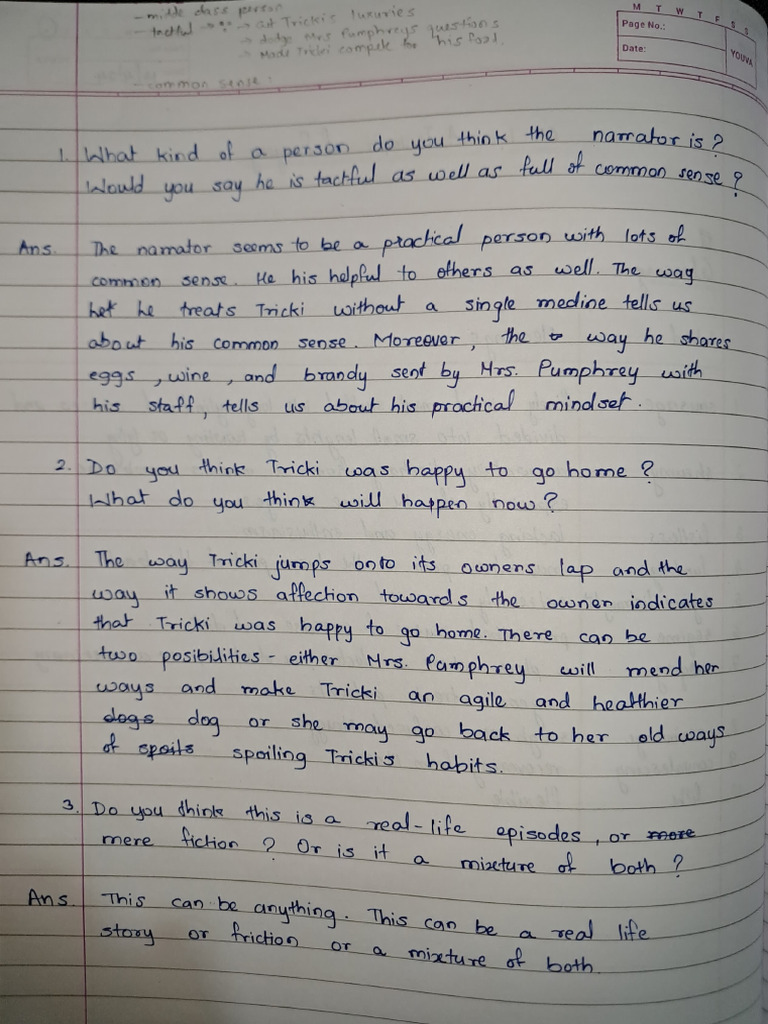 - middle class person
- tactful → :- → cut Tricki's luxuries
→ dodge Mrs Pumphreys questions
→ Made Tricki compete for his food.
- common sense :
M T W T F S S
Page No.:
Date:
YOUVA
1. What kind of a person do you think the narrator is?
Would you say he is tactful as well as full of common sense?
Ans. The narrator seems to be a practical person with lots of
common sense. He his helpful to others as well. The way
he treats Tricki without a single medine tells us
about his common sense. Moreover, the way he shares
eggs, wine, and brandy sent by Mrs. Pumphrey with
his staff, tells us about his practical mindset.
2. Do you think Tricki was happy to go home?
What do you think will happen now?
Ans. The way Tricki jumps onto its owners lap and the
way it shows affection towards the owner indicates
that Tricki was happy to go home. There can be
two posibilities - either Mrs. Pumphrey will mend her
ways and make Tricki an agile and healthier
dogs dog or she may go back to her old ways
of spoils spoiling Trickis habits.
3. Do you think this is a real-life episodes, or more
mere fiction? Or is it a mixture of both?
Ans. This can be anything. This can be a real life
story or friction or a mixture of both.